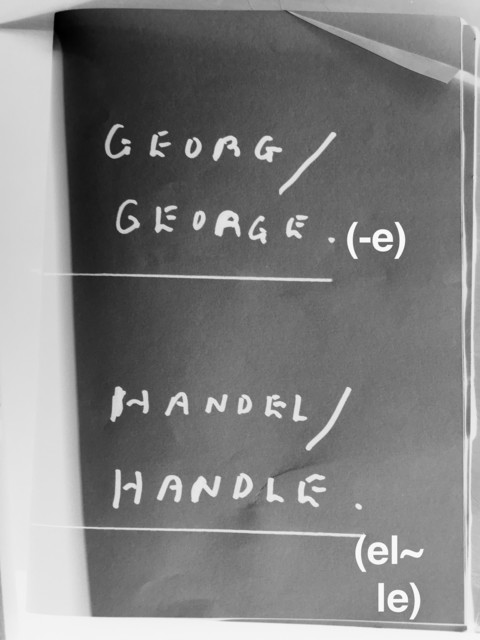 GEORG/
GEORGE. (-e)
HANDEL/
HANDLE.
(el~
le)